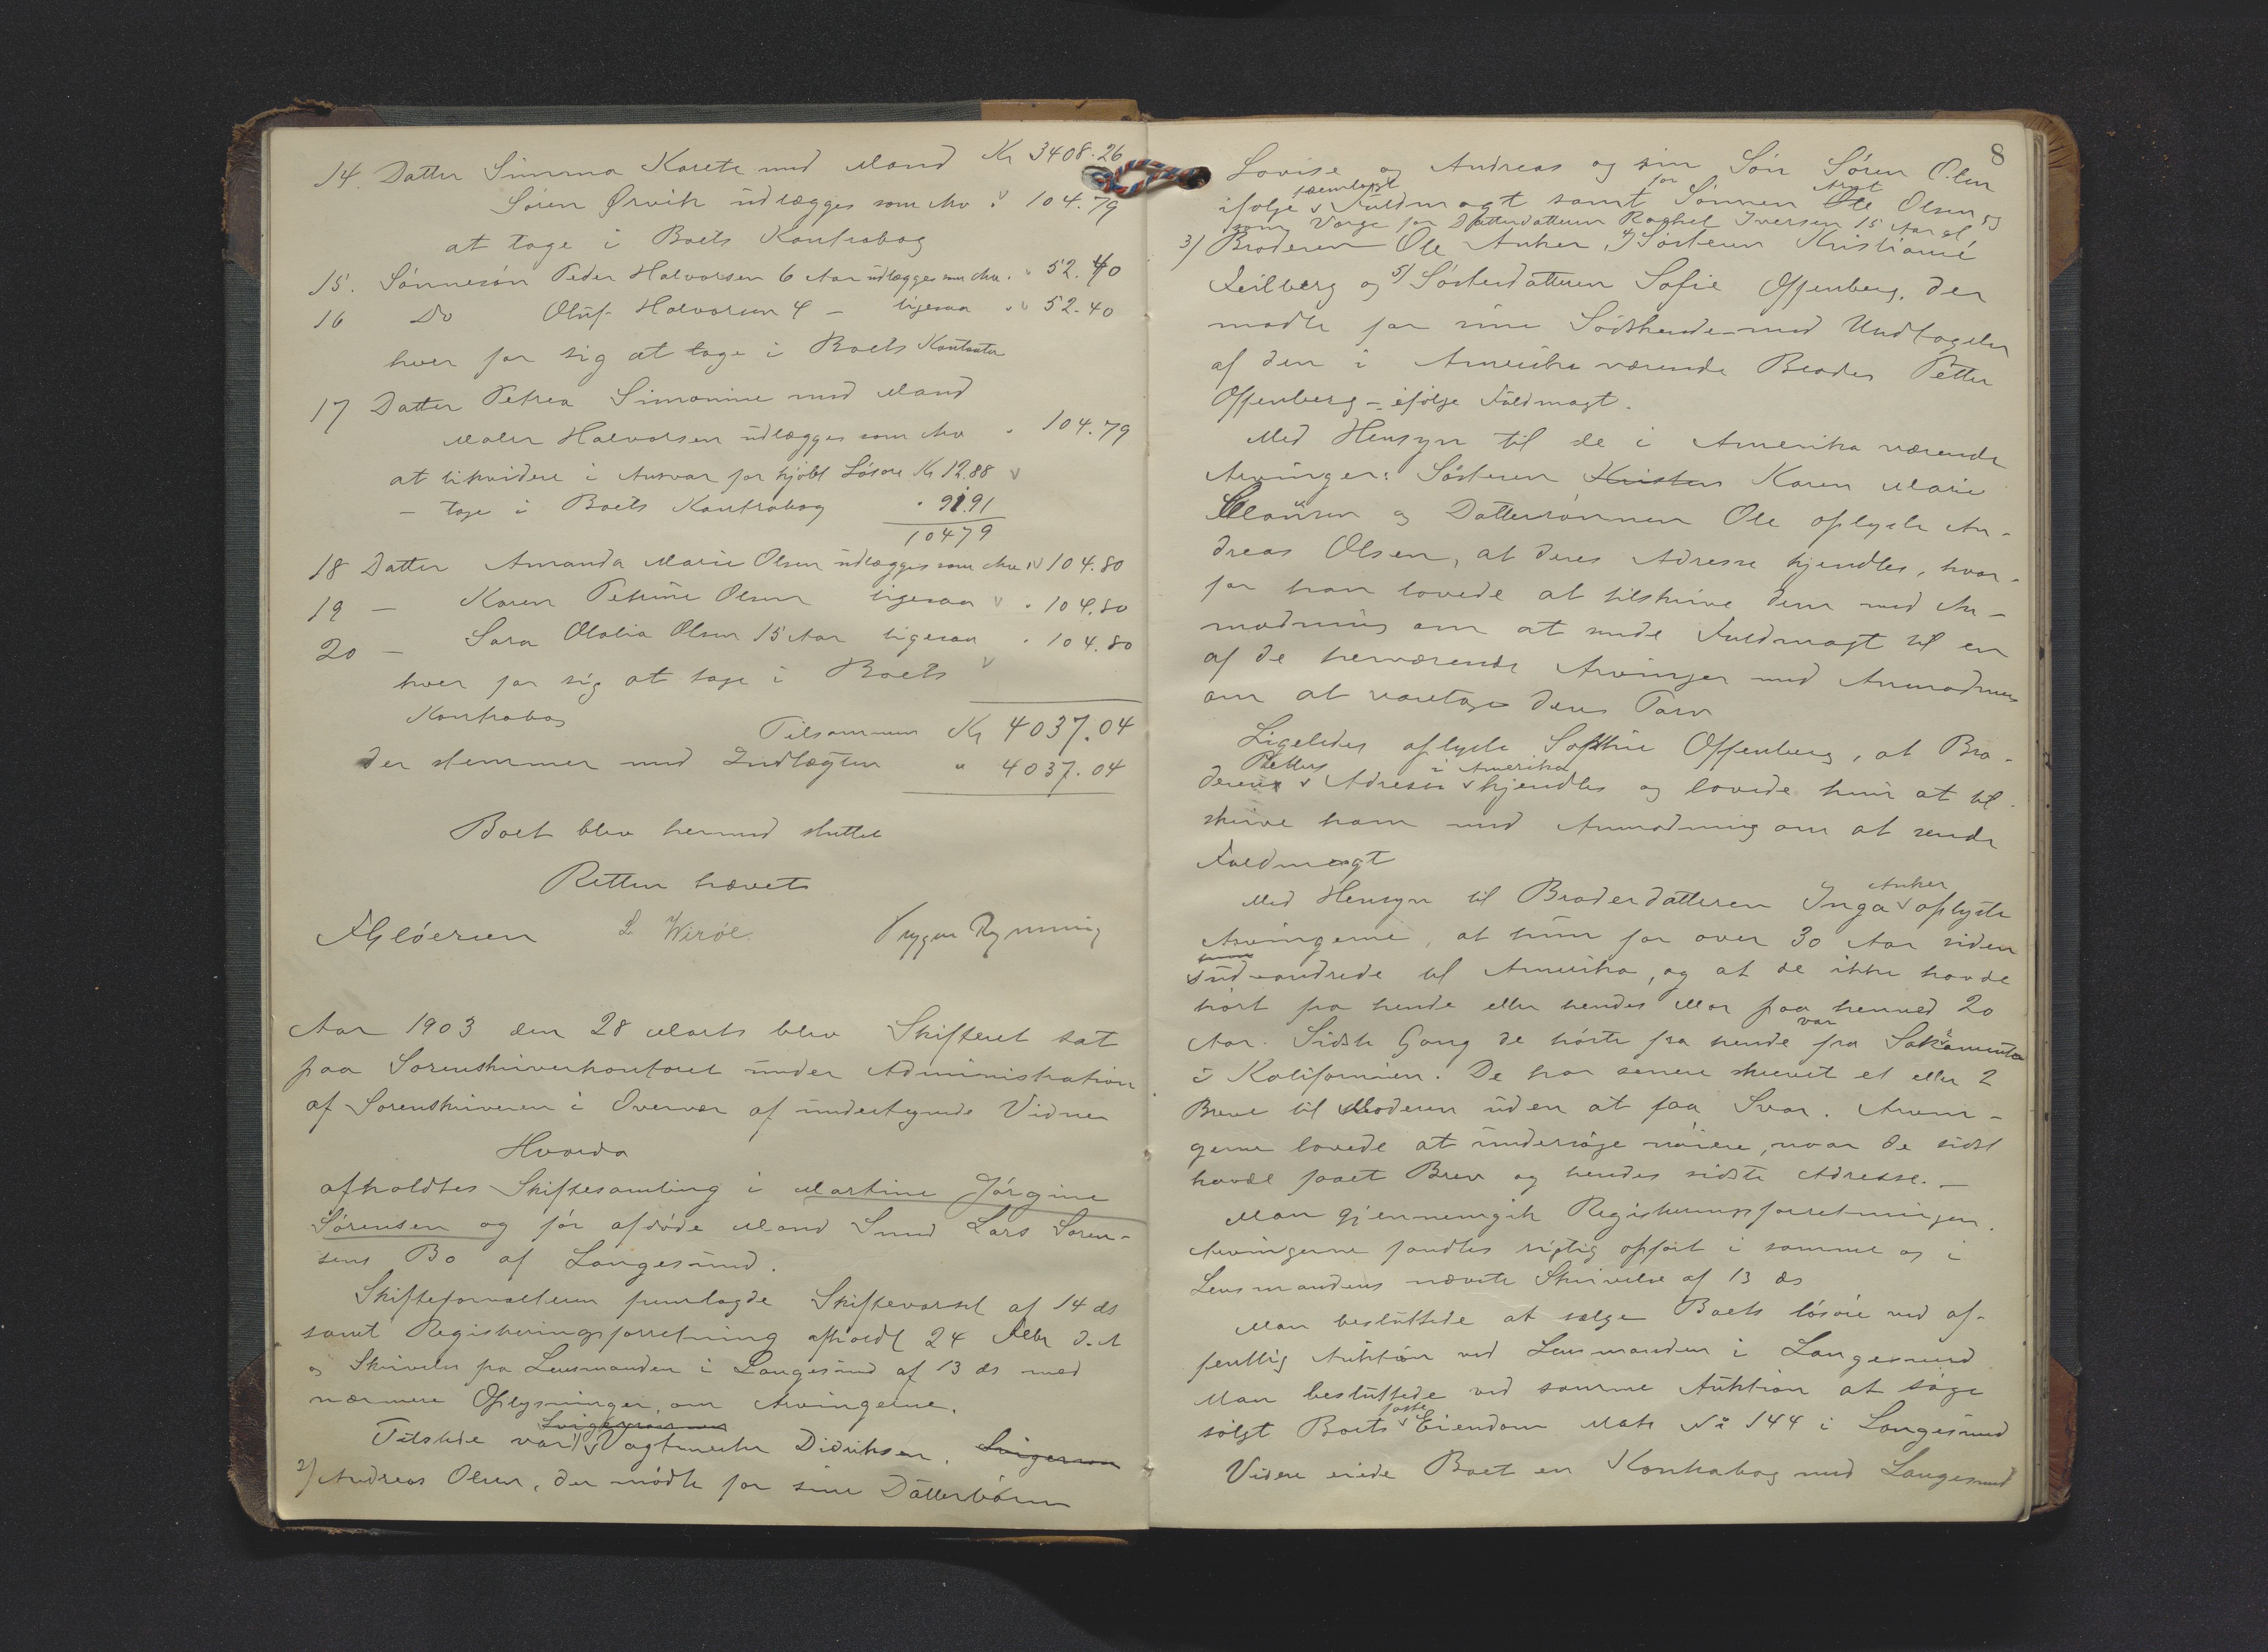 Kr 3408.26
14. Datter Simma Karete med Mand
Søren Ørvik udlægges som Arv " 104.79
at tage i Boets Kontrabog
15. Sønnesøn Peder Halvorsen 6 Aar udlægges som Arv " 52.40
16 Do Oluf Halvorsen 4 - ligesaa " 52.40
hver for sig at tage i Boets Kontanter
17 Datter Petrea Simonine med Mand
Maler Halvorsen udlægges som Arv " 104.79
at likvidere i Ansvar for kjøbt Løsøre Kr 12.88
- tage i Boets Kontrabog " 91.91
104 79
18 Datter Amanda Marie Olsen udlægges som Arv " 104.80
19 - Karen Petrine Olsen ligesaa " 104.80
20 - Sara Olalia Olsen 15 Aar ligesaa " 104.80
hver for sig at tage i Boets
Kontrabog
Tilsammen Kr 4037.04
der stemmer med Indtægten " 4037.04
Boet blev hermed sluttet
Retten hævet
FGløersen L Wirøe. Trygve Rynning
Aar 1903 den 28 Marts blev Skifteret sat
paa Sorenskriverkontoret under Administration
af Sorenskriveren i Overvær af undertegnede Vidner
Hvorda
afholdtes Skiftesamling i Martine Jørgine
Sørensen og før afdøde Mand Smed Lars Søren-
sens Bo af Langesund.
Skifteforvalteren fremlagde Skiftevarsel af 14 ds
samt Registreringsforretning afholdt 24 Febr d.A
og Skrivelse fra Lensmanden i Langesund af 13 ds med
nærmere Oplysninger om Arvingerne.
Svigersønnen
Tilstede var 1) Vagtmester Didriksen, Svigersøn
2) Andreas Olsen, der mødte for sine Datterbørn
8
Lovise og Andreas og sin Søn Søren Olsen
fremlagt for Arnt
ifølge Fuldmagt samt Sønnen Ole Olsen og
som Værge for Datterdatteren Raghel Iversen 15 Aar gl
3) Broderen Ole Anker, 4) Søsteren Kristiane
Feilberg og 5) Søsterdatteren Sofie Offenberg, der
mødte for sine Sødskende med Undtagelse
af den i Amerika værende Broder Petter
Offenberg - ifølge Fuldmagt.
Med Hensyn til de i Amerika værende
Arvinger: Søsteren Kristens Karen Marie
Clausen og Dattersønnen Ole oplyste An-
dreas Olsen, at deres Adresse kjendtes, hvor-
for han lovede at tilskrive dem med An-
modning om at sende Fuldmagt til en
af de herværende Arvinger med Anmodning
om at varetage deres Tarv
Ligeledes oplyste Sofie Offenberg, at Bro-
Petters i Amerika
derens Adresse kjendtes og lovede hun at til-
skrive ham med Anmodning om at sende
Fuldmagt
Anker
Med Hensyn til Broderdatteren Inga oplyste
Arvingerne, at hun for over 30 Aar siden
udvandrede til Amerika, og at de ikke havde
hørt fra hende eller hendes Mor paa henved 20
var
Aar. Sidste Gang de hørte fra hende fra Sakramento
i Kalifornien. De har senere skrevet et eller 2
Breve til Moderen uden at faa Svar. Arvin-
gerne lovede at undersøge nøiere, naar de sidst
havde faaet Brev og hendes sidste Adresse. -
Man gjennemgik Registreringsforretningen.
Arvingerne fandtes rigtig opført i samme og i
Lensmandens nævnte Skrivelse af 13 ds
Man besluttede at sælge Boets løsøre ved of-
fentlig Auktion ved Lensmanden i Langesund
Man besluttede ved samme Auktion at søge
faste
solgt Boets Eiendom Matr No 144 i Langesund
Videre eiede Boet en Kontrabog med Langesund